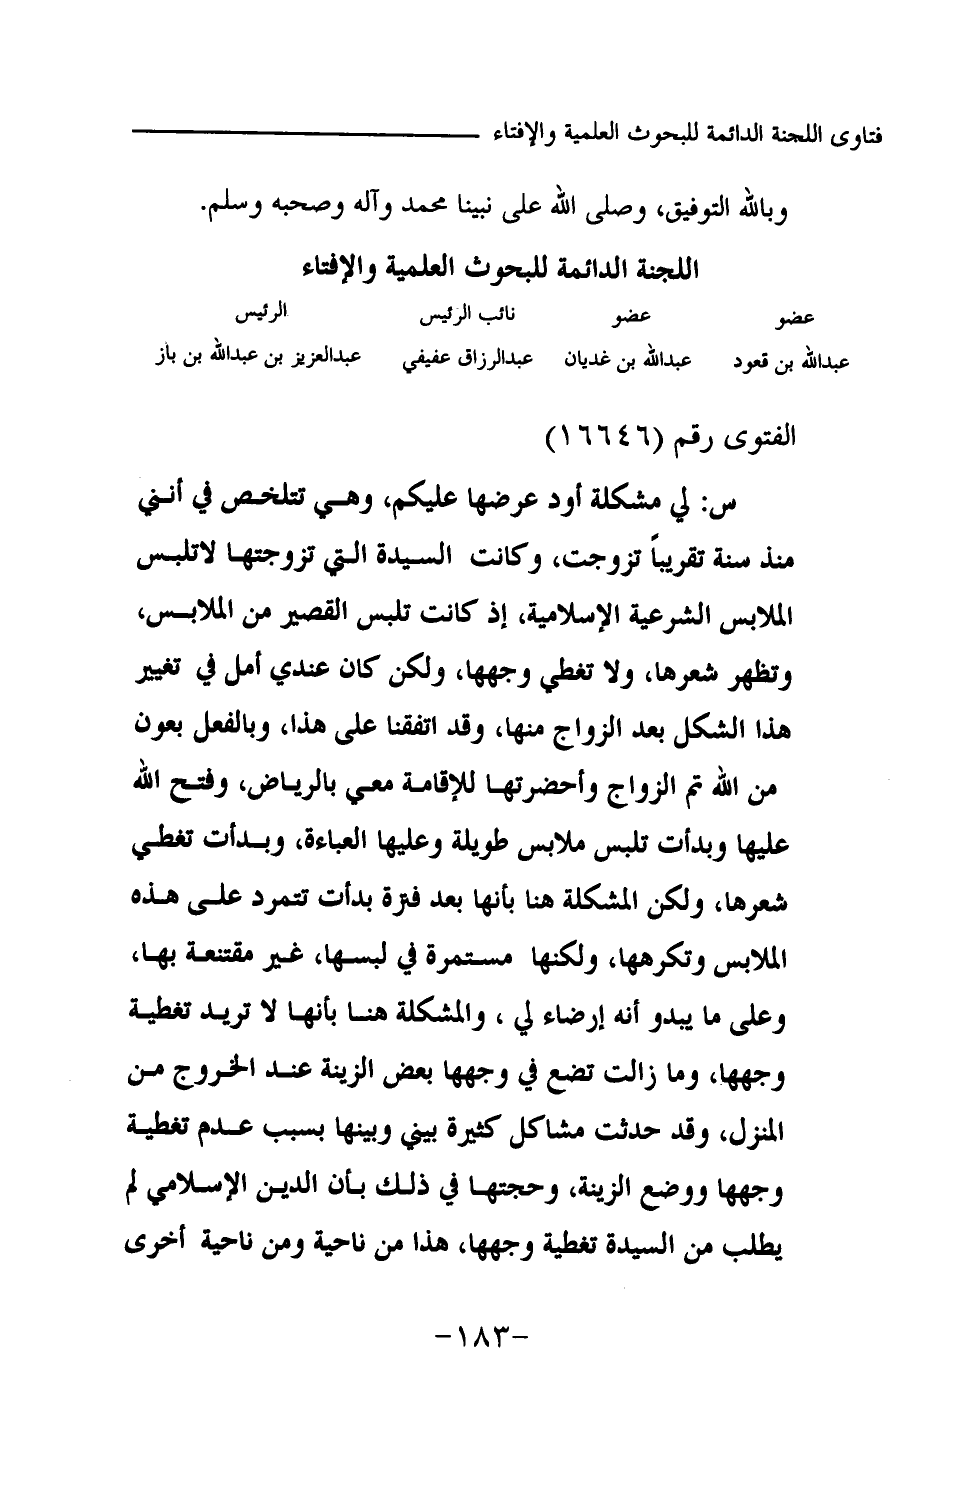 فتاوى اللجنة الدائمة للبحوث العلمية والإفتاء
وبالله التوفيق، وصلى الله على نبينا محمد وآله وصحبه وسلم.
اللجنة الدائمة للبحوث العلمية والإفتاء
عضو عضو نائب الرئيس الرئيس
عبدالله بن قعود عبدالله بن غديان عبدالرزاق عفيفي عبدالعزيز بن عبدالله بن باز
الفتوى رقم (١٦٦٤٦)
س: لي مشكلة أود عرضها عليكم، وهي تتلخص في أنني
منذ سنة تقريباً تزوجت، وكانت السيدة التي تزوجتها لاتلبس
الملابس الشرعية الإسلامية، إذ كانت تلبس القصير من الملابس،
وتظهر شعرها، ولا تغطي وجهها، ولكن كان عندي أمل في تغيير
هذا الشكل بعد الزواج منها، وقد اتفقنا على هذا، وبالفعل بعون
من الله تم الزواج وأحضرتها للإقامة معي بالرياض، وفتح الله
عليها وبدأت تلبس ملابس طويلة وعليها العباءة، وبدأت تغطي
شعرها، ولكن المشكلة هنا بأنها بعد فترة بدأت تتمرد على هذه
الملابس وتكرهها، ولكنها مستمرة في لبسها، غير مقتنعة بها،
وعلى ما يبدو أنه إرضاء لي ، والمشكلة هنا بأنها لا تريد تغطية
وجهها، وما زالت تضع في وجهها بعض الزينة عند الخروج من
المنزل، وقد حدثت مشاكل كثيرة بيني وبينها بسبب عدم تغطية
وجهها ووضع الزينة، وحجتها في ذلك بأن الدين الإسلامي لم
يطلب من السيدة تغطية وجهها، هذا من ناحية ومن ناحية أخرى
-١٨٣-